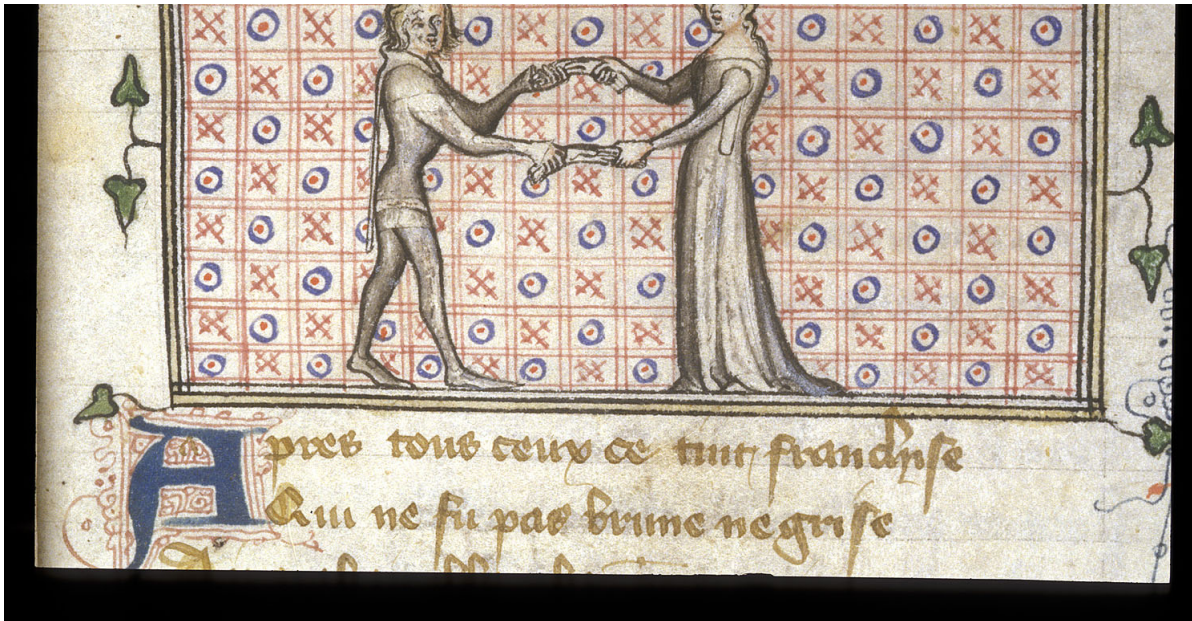 Apres tous ceux ce tint franchise
Qui ne fu pas brune ne grise